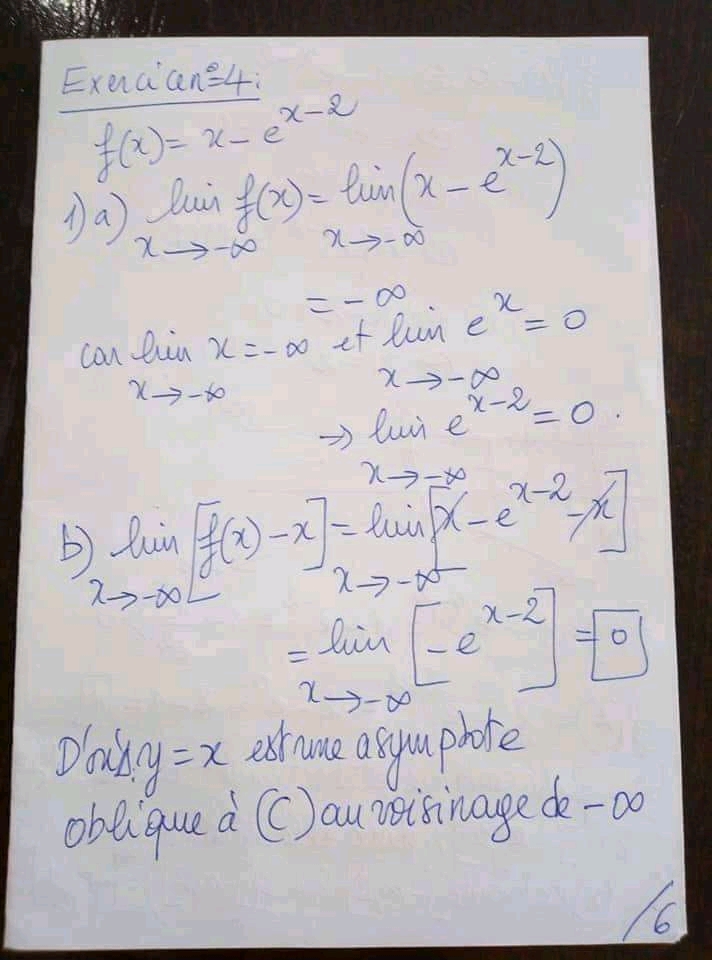 Exercice n°4:
f(x)= x - e^{x-2}
1) a) lim f(x) = lim (x - e^{x-2})
x→-∞ x→-∞
= -∞
car lim x = -∞ et lim e^x = 0
x→-∞ x→-∞
→ lim e^{x-2} = 0.
x→-∞
b) lim [f(x) - x] = lim [x - e^{x-2} - x]
x→-∞ x→-∞
= lim [-e^{x-2}] = 0
x→-∞
D'où Δ: y = x est une asymptote
oblique à (C) au voisinage de -∞
/6